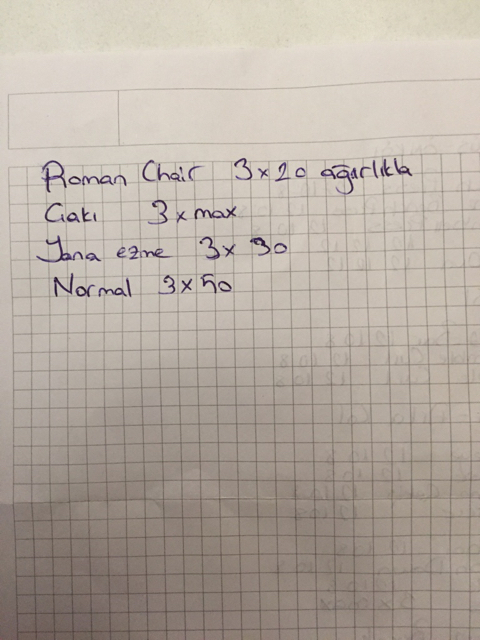 Roman Chair 3x20 ağırlıkla
Çakı 3xmax
Yana ezne 3x30
Normal 3x50